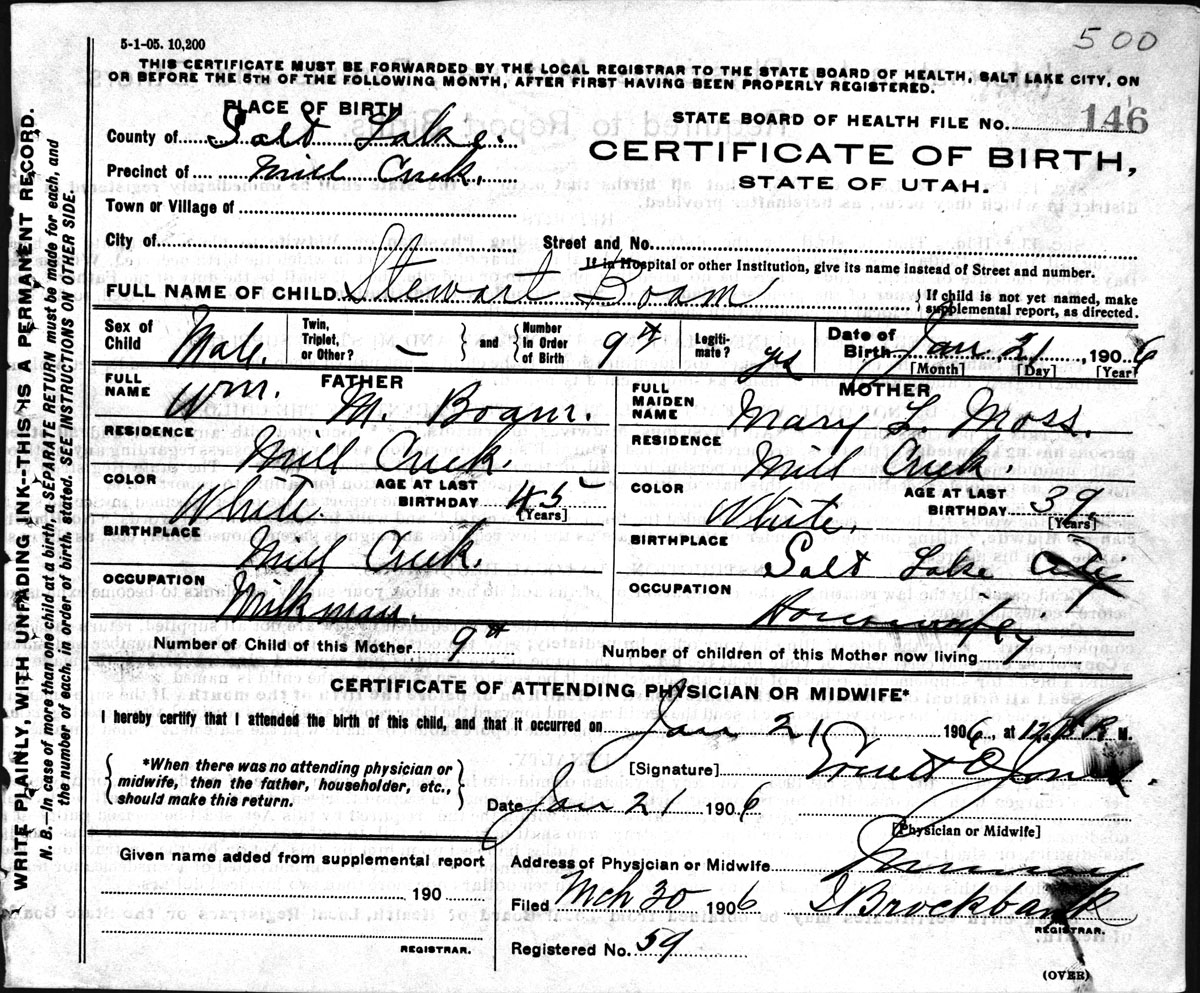 500
5-1-05. 10,200
THIS CERTIFICATE MUST BE FORWARDED BY THE LOCAL REGISTRAR TO THE STATE BOARD OF HEALTH, SALT LAKE CITY, ON
OR BEFORE THE 5TH OF THE FOLLOWING MONTH, AFTER FIRST HAVING BEEN PROPERLY REGISTERED.
WRITE PLAINLY WITH UNFADING INK—THIS IS A PERMANENT RECORD.
N. B.—In case of more than one child at a birth, a SEPARATE RETURN must be made for each, and
the number of each, in order of birth, stated. SEE INSTRUCTIONS ON OTHER SIDE.
PLACE OF BIRTH
County of Salt Lake.
Precinct of Mill Creek.
Town or Village of
City of
STATE BOARD OF HEALTH FILE No. 146
CERTIFICATE OF BIRTH,
STATE OF UTAH.
Street and No.
If in Hospital or other Institution, give its name instead of Street and number.
FULL NAME OF CHILD Stewart Boam
If child is not yet named, make
supplemental report, as directed.
Sex of Child Male.
Twin, Triplet, or Other? –
and
Number in Order of Birth 9th
Legiti-mate? yes
Date of Birth Jan 21, 1906
[Month] [Day] [Year]
FATHER
FULL NAME Wm. M. Boam.
RESIDENCE Mill Creek.
COLOR White.
AGE AT LAST BIRTHDAY 45
[Years]
BIRTHPLACE Mill Creek.
OCCUPATION Milkman.
MOTHER
FULL MAIDEN NAME Mary L. Moss.
RESIDENCE Mill Creek.
COLOR White.
AGE AT LAST BIRTHDAY 39.
[Years]
BIRTHPLACE Salt Lake City
OCCUPATION Housewife
Number of Child of this Mother 9th
Number of children of this Mother now living 7
CERTIFICATE OF ATTENDING PHYSICIAN OR MIDWIFE*
I hereby certify that I attended the birth of this child, and that it occurred on Jan 21 1906, at M.
*When there was no attending physician or
midwife, then the father, householder, etc.,
should make this return.
[Signature] Jones.
Date Jan 21 1906
[Physician or Midwife]
Given name added from supplemental report
190
REGISTRAR.
Address of Physician or Midwife Murray
Filed Mch 30 1906 Brockbank
REGISTRAR.
Registered No. 59
(OVER)